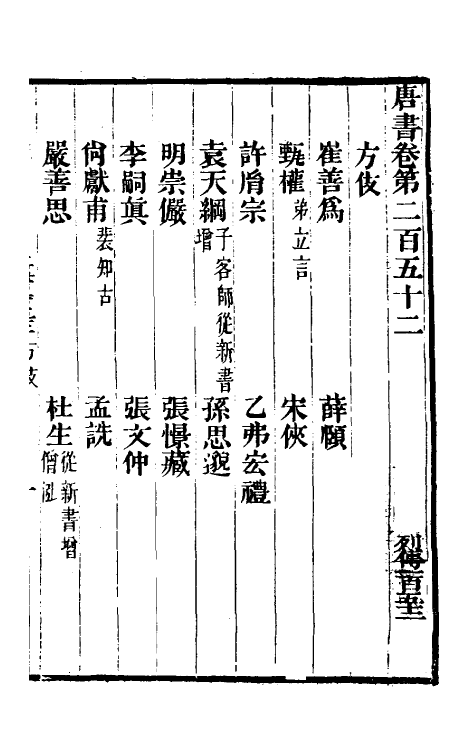 唐書卷第二百五十二 列傳二百至
方伎
崔善爲 薛頤
甄權弟立言 宋俠
許胤宗 乙弗宏禮
袁天綱子客師從新書增 孫思邈
明崇儼 張憬藏
李嗣眞 張文仲
尙獻甫裴知古 孟詵
嚴善思 杜生從新書增 僧泓
方技 一